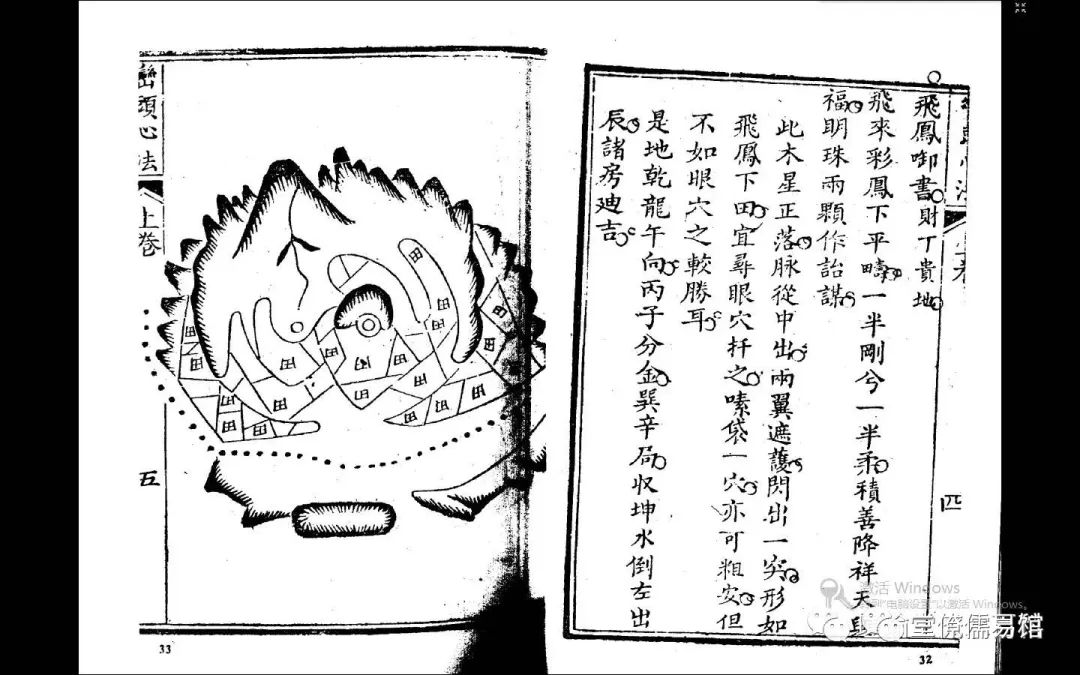 飛鳳啣書財丁貴地
飛來彩鳳下平疇一半剛兮一半柔積善降祥天與
福明珠兩顆作詒謀
此木星正落脉從中出兩翼遮護閃出一突形如
飛鳳下田宜尋眼穴扦之嗉袋一穴亦可粗安但
不如眼穴之較勝耳
是地乾龍午向丙子分金巽辛局収坤水倒左出
辰諸房廸吉
四
32
巒頭心法
上卷
五
田
田
田
田
田
田
田
田
田
田
田
33
激活 Windows
以激活 Windows。